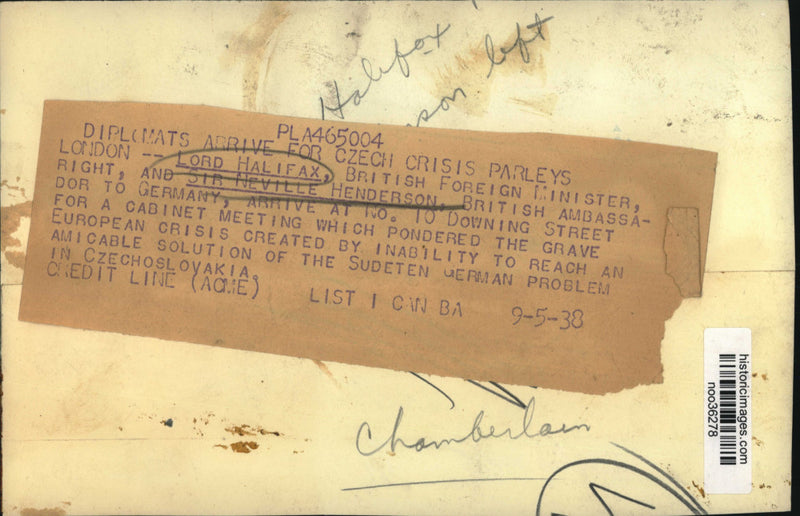 Halifax
left
PLA465004
DIPLOMATS ARRIVE FOR CZECH CRISIS PARLEYS
LONDON -- LORD HALIFAX, BRITISH FOREIGN MINISTER,
RIGHT, AND SIR NEVILLE HENDERSON, BRITISH AMBASSA-
DOR TO GERMANY, ARRIVE AT NO. 10 DOWNING STREET
FOR A CABINET MEETING WHICH PONDERED THE GRAVE
EUROPEAN CRISIS CREATED BY INABILITY TO REACH AN
AMICABLE SOLUTION OF THE SUDETEN GERMAN PROBLEM
IN CZECHOSLOVAKIA.
CREDIT LINE (ACME) LIST I CAN BA 9-5-38
Chamberlain
historicimages.com
noo36278